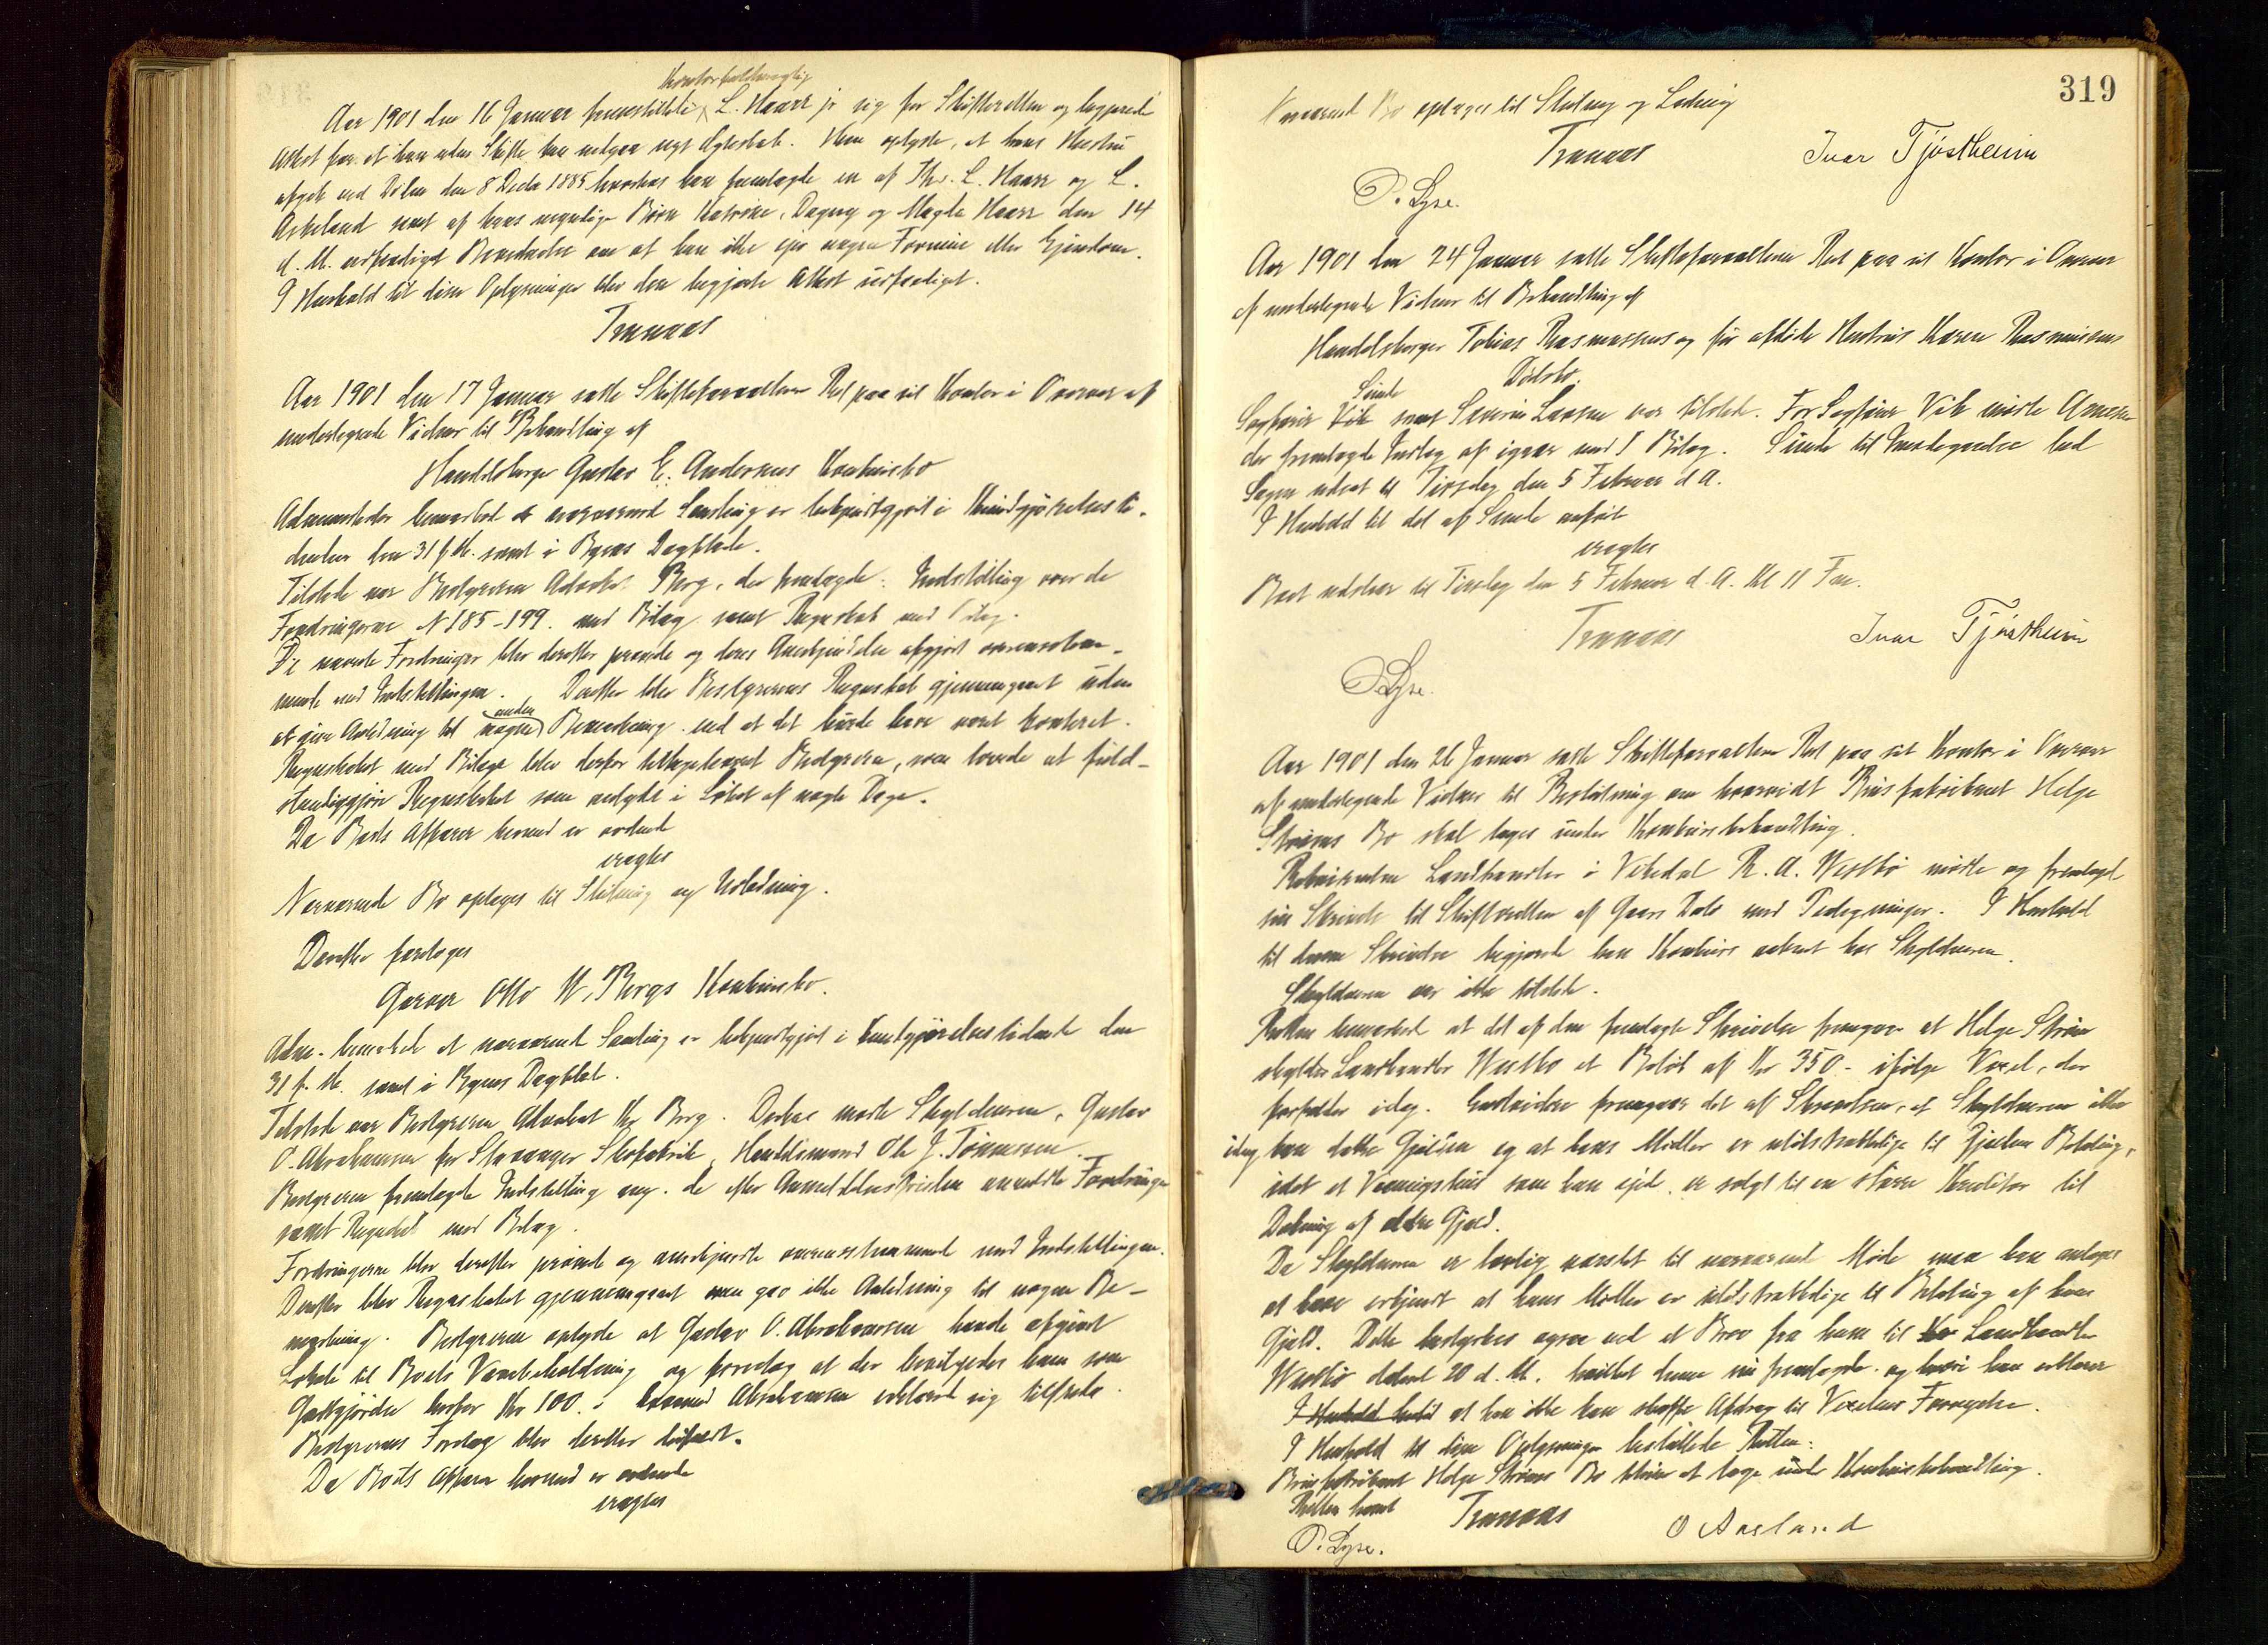 Kontorfuldmægtig
Aar 1901 den 16 Januar fremstillede L. Haarr jr sig for Skifteretten og begjærede
Attest for at han uden Skifte kan indgaa nyt Ægteskab. Han oplyste, at hans Hustru
afgik ved Døden den 8 Decbr 1885 hvorhos han fremlagde en af Ths. L. Haarr og L.
Askeland samt af hans myndige Børn Katrine, Dagny og Magla Haarr den 14
d. M. udfærdiget Bevidnelse om at han ikke eier nogen Formue eller Eiendom.
I Henhold til disse Oplysninger blev den begjærte Attest udfærdiget.
Tranaas
Aar 1901 den 17 Januar satte Skifteforvalteren Ret paa sit Kontor i Overvær af
undertegnede Vidner til Behandling af
Handelsborger Gustav E. Andersens Konkursbo
Administrator bemærket at nærværende Samling er bekjendtgjort i Kundgjørelsesti-
dende den 31 f. M. samt i Byens Dagblade.
Tilstede var Bestyreren Advokat Berg, der fremlagde: Indstilling over de
Fordringerne N 185-199. med Bilag samt Regnskab med Bilag.
De nævnte Fordringer blev derefter prøvede og deres Anerkjendelse afgjort overensstem-
mende med Indstillingen. Derefter blev Bestyrerens Regnskab gjennemgaaet uden
at give Anledning til nogen anden Bemærkning end at det burde have været kvoteret.
Regnskabet med Bilage blev derfor tilbageleveret Bestyreren, som lovede at fuld-
stændiggjøre Regnskabet som antydet i Løbet af nogle Dage.
Da Boets Affærer hermed er ordnede
eragtes
Nærværende Bo optages til Slutning og Udlodning.
Derefter foretoges
Garver Otto W. Bergs Konkursbo.
Adm. bemærkede at nærværende Samling er bekjendtgjort i Kundgjørelsestidende den
31 f. M. samt i Byens Dagblad.
Tilstede var Bestyreren Advokat Chr Berg. Derhos mødte Skyldneren, Gustav
O. Abrahamsen for Stavanger Skofabrik, Handelsmand Ole J. Tønnessen.
Bestyreren fremlagde Indstilling ang. de efter Anmeldelsesfristen anmeldte Fordringer
samt Regnskab med Bilag.
Fordringerne blev derefter prøvede og anerkjendte overensstemmende med Indstillingen.
Derefter blev Regnskabet gjennemgaaet men gav ikke Anledning til nogen Be-
mærkning. Bestyreren oplyste at Gustav O. Abrahamsen havde afgivet
Lokale til Boets Varebeholdning og foreslog at der bevilgedes ham som
Godtgjørelse herfor Kr 100. hvormed Abrahamsen erklærede sig tilfreds.
Bestyrerens Forslag blev derefter bifaldt.
Da Boets Affærer hermed er ordnede
eragtes
319
Nærværende Bo optages til Slutning og Lodning
Tranaas Ivar Tjøstheim
P. Lyse.
Aar 1901 den 24 Januar satte Skifteforvalteren Ret paa sit Kontor i Overvær
af undertegnede Vidner til Behandling af
Handelsborger Tobias Rasmussens og før afdøde Hustrus Karen Rasmussens
Dødsbo.
Sømde
Sagfører Vik samt Severin Larsen var tilstede. For Sagfører Vik mødte Arnesen
der fremlagde Indlæg af igaar med 1 Bilag. Sømde til Imødegaaelse bad
Sagen udsat til Tirsdag den 5 Februar d A.
I Henhold til det af Sømde anførte
eragtes
Boet udstaar til Tirsdag den 5 Februar d. A. Kl 11 Fm.
Tranaas Ivar Tjøstheim
P. Lyse.
Aar 1901 den 26 Januar satte Skifteforvalteren Ret paa sit Kontor i Overvær
af undertegnede Vidner til Beslutning om hvorvidt Brusfabrikant Helge
Strøms Bo skal tages under Konkursbehandling.
Rekvirenten Landhandler i Vikedal R. A. Westbø mødte og fremlagde
sin Skrivelse til Skifteretten af Gaars Dato med Paategninger. I Henhold
til denne Skrivelse begjærede han Konkurs aabnet hos Skyldneren.
Skyldneren var ikke tilstede.
Retten bemærkede at det af den fremlagte Skrivelse fremgaar at Helge Strøm
skylder Landhandler Westbø et Beløb af Kr 350.- ifølge Vexel, der
forfalder idag. Endvidere fremgaar det af Skrivelsen, at Skyldneren ikke
idag kan dække Gjælden og at hans Midler er utilstrækkelige til Gjælden Betaling,
idet et Vaaningshus som han eied, er solgt til en større Kreditor til
Dækning af ældre Gjæld.
Da Skyldneren er lovlig varslet til nærværende Møde maa han antages
at have erkjendt at hans Midler er utilstrækkelige til Betaling af hans
Gjæld. Dette bestyrkes ogsaa ved et Brev fra ham til Landhandler
Westbø dateret 20 d. M. hvilket denne nu fremlagde og hvori han erklærer
I Henhold hertil at han ikke kan skaffe Afdrag til Vexelens Fornyelse.
I Henhold til disse Oplysninger besluttede Retten:
Brusfabrikant Helge Strøms Bo bliver at tage under Konkursbehandling.
Retten hævet
Tranaas O Aasland
P. Lyse.